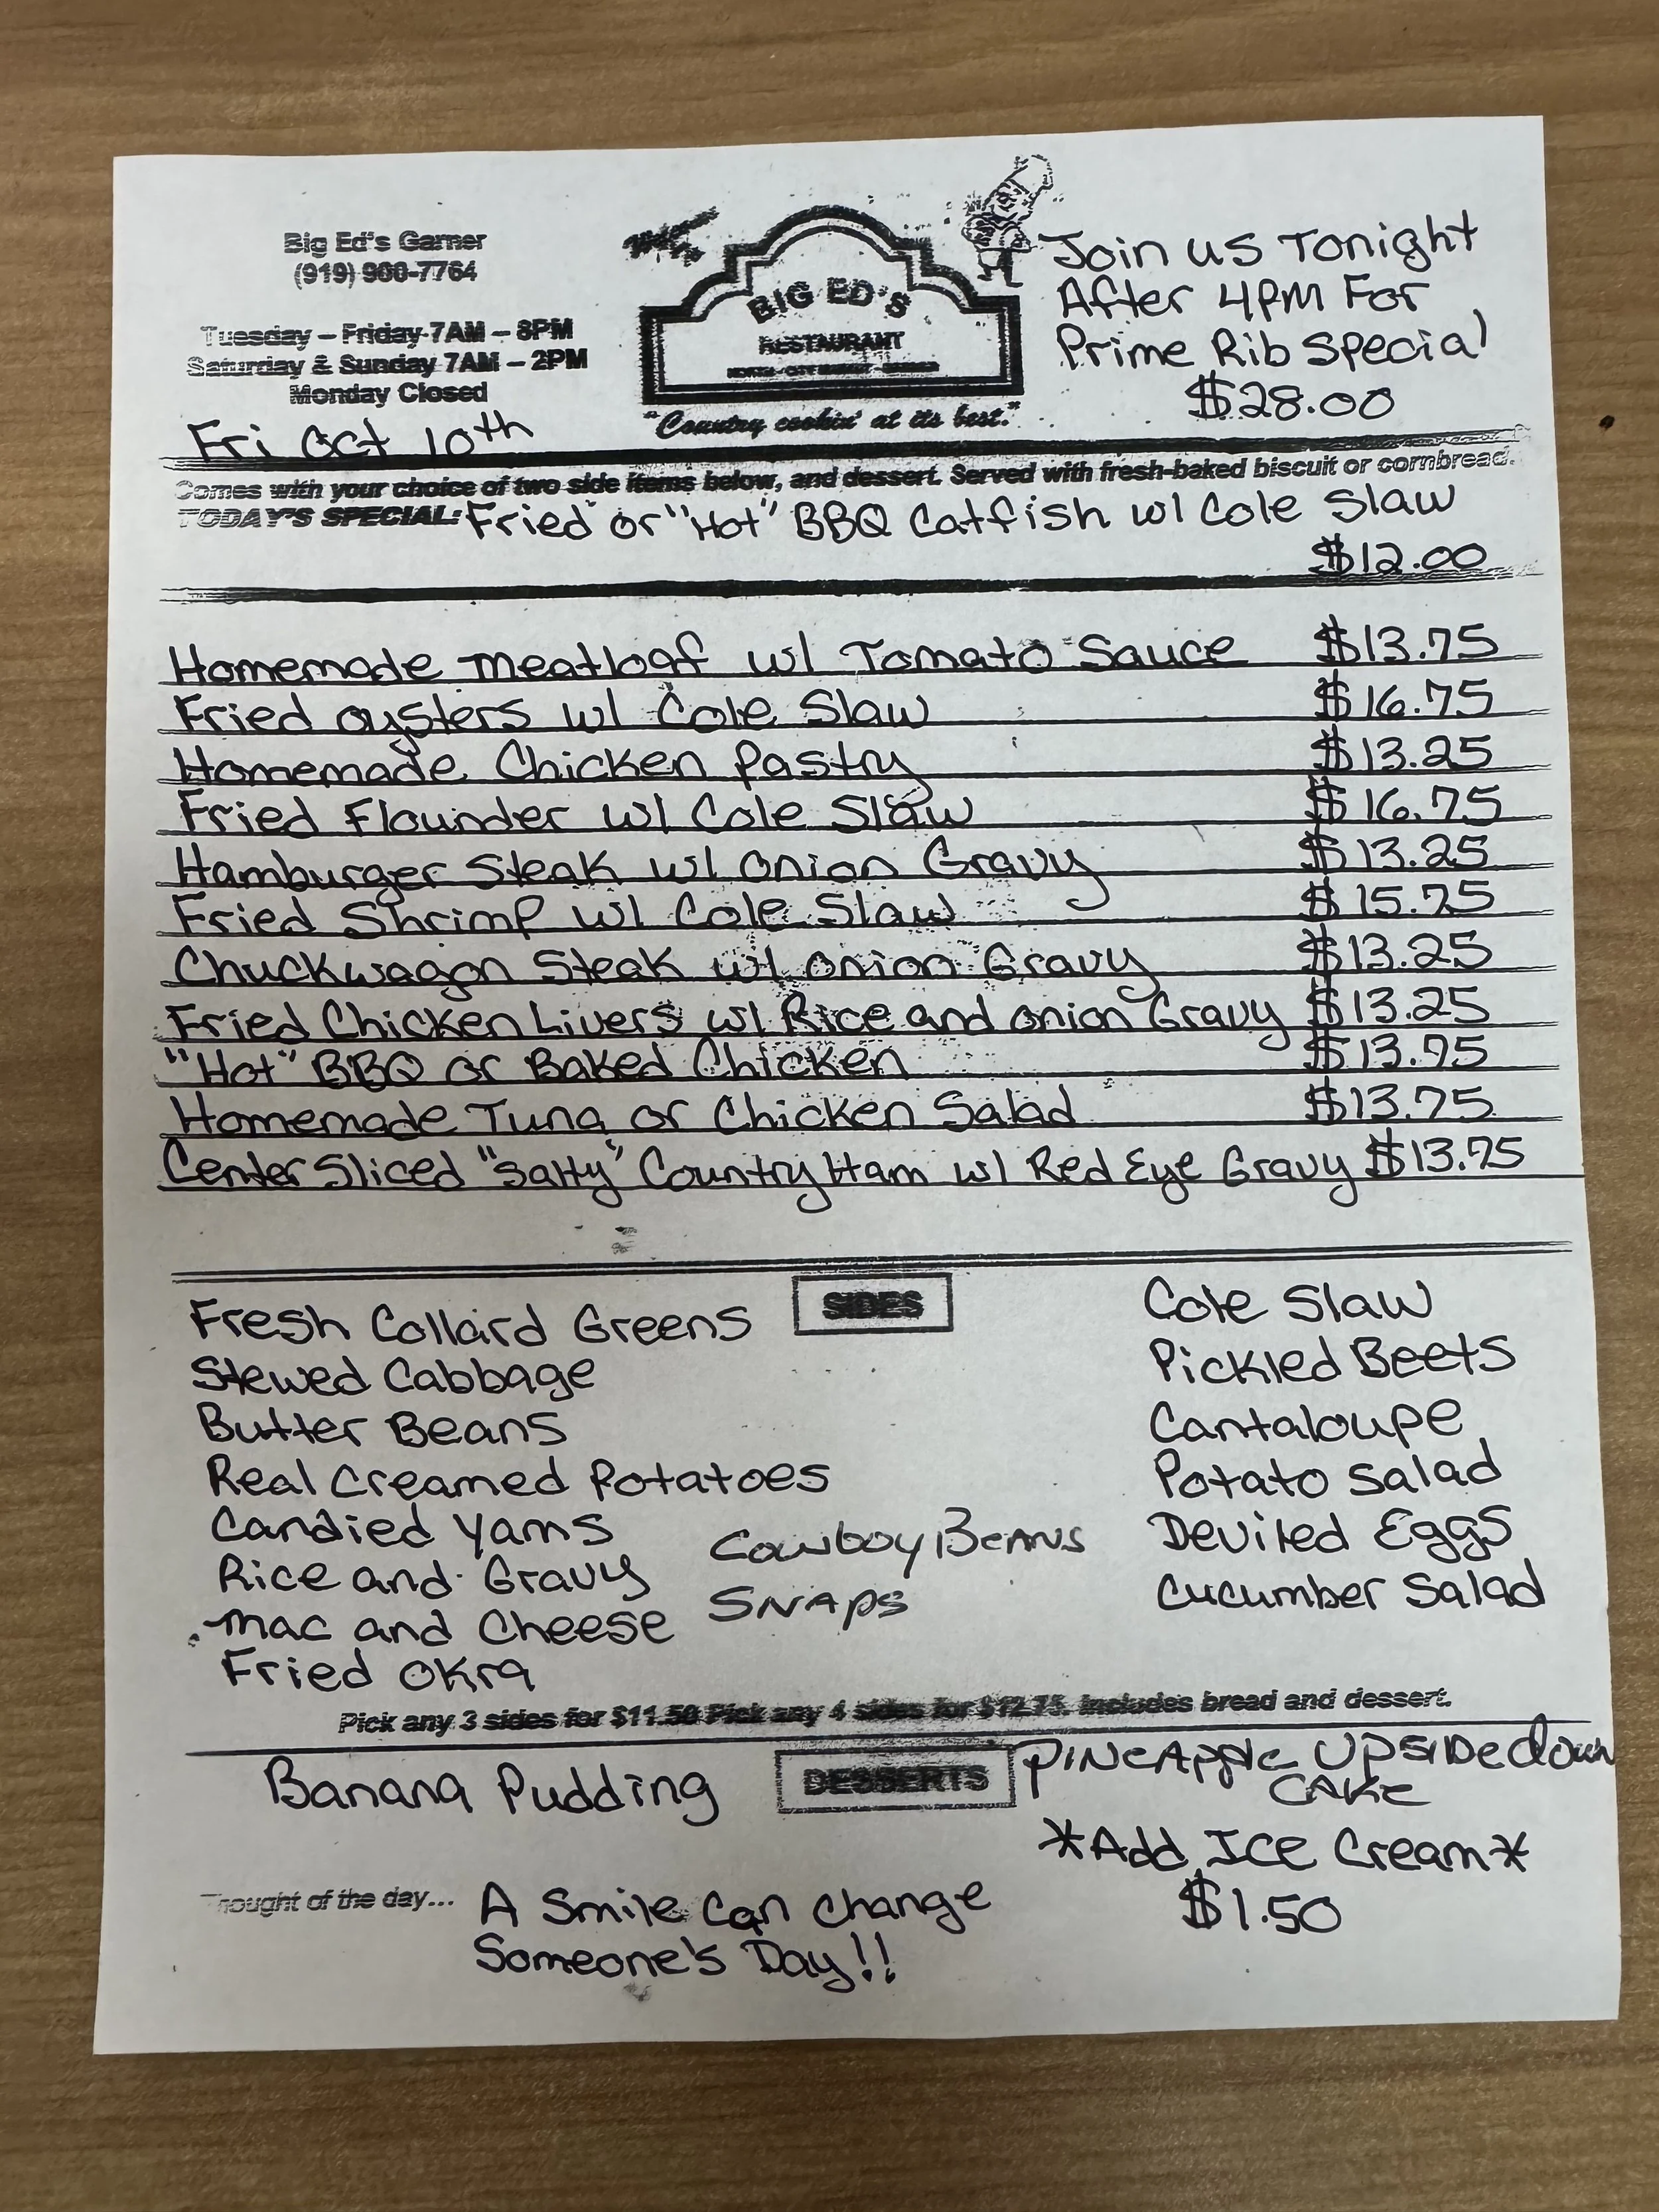 Big Ed's Garner
(919) 900-7764
Tuesday – Friday 7AM – 8PM
Saturday & Sunday 7AM – 2PM
Monday Closed
Fri Oct 10th
BIG ED'S
RESTAURANT
"Country cookin' at its best."
Join us Tonight
After 4PM For
Prime Rib Special
$28.00
Comes with your choice of two side items below, and dessert. Served with fresh-baked biscuit or cornbread.
TODAY'S SPECIAL: Fried or "Hot" BBQ Catfish w/ Cole Slaw
$12.00
Homemade Meatloaf w/ Tomato Sauce $13.75
Fried Oysters w/ Cole Slaw $16.75
Homemade Chicken Pastry $13.25
Fried Flounder w/ Cole Slaw $16.75
Hamburger Steak w/ Onion Gravy $13.25
Fried Shrimp w/ Cole Slaw $15.75
Chuckwagon Steak w/ Onion Gravy $13.25
Fried Chicken Livers w/ Rice and Onion Gravy $13.25
"Hot" BBQ or Baked Chicken $13.75
Homemade Tuna or Chicken Salad $13.75
Center Sliced "Salty" Country Ham w/ Red Eye Gravy $13.75
SIDES
Fresh Collard Greens
Stewed Cabbage
Butter Beans
Real Creamed Potatoes
Candied Yams
Rice and Gravy
Mac and Cheese
Fried Okra
Cowboy Beans
Snaps
Cole Slaw
Pickled Beets
Cantaloupe
Potato Salad
Deviled Eggs
Cucumber Salad
Pick any 3 sides for $11.50 Pick any 4 sides for $12.75. Includes bread and dessert.
DESSERTS
Banana Pudding
Pineapple Upside down
Cake
*Add Ice Cream*
$1.50
Thought of the day... A Smile Can Change
Someone's Day!!